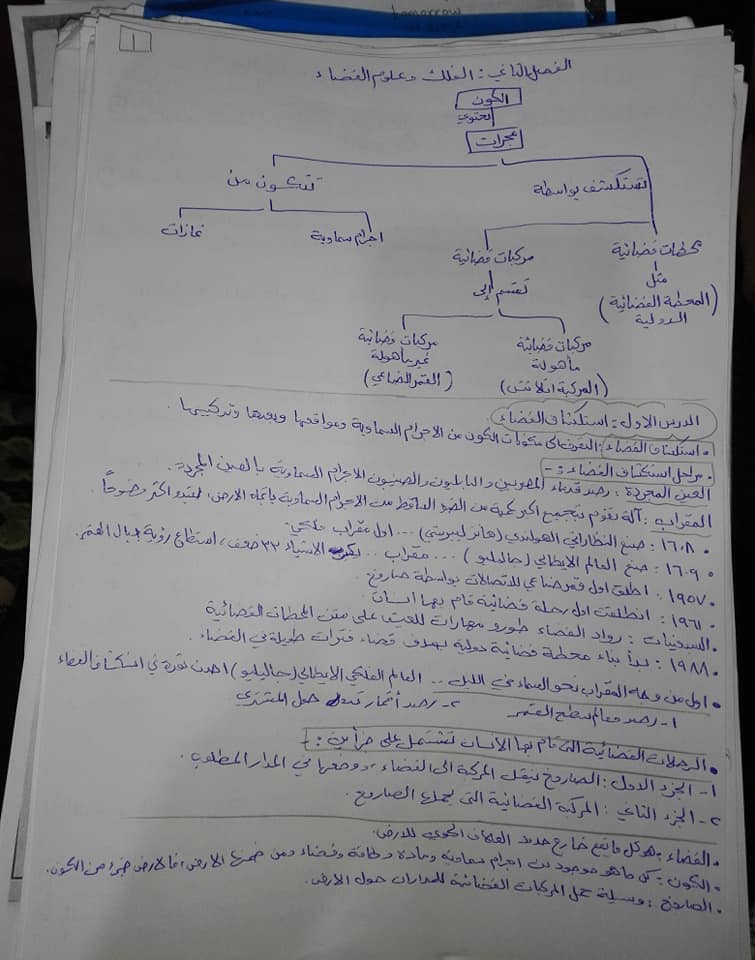 tomorrow
١
الفصل الثاني : الفلك وعلوم الفضاء
الكون
تحتوي
مجرات
تستكشف بواسطة
تتكون من
محطات فضائية
مركبات فضائية
اجرام سماوية
غازات
مثل
تقسم إلى
(المحطة الفضائية الدولية)
مركبات فضائية مأهولة
مركبات فضائية غير مأهولة
(المركبة اتلانتس)
(القمر الصناعي)
الدرس الاول : استكشاف الفضاء
• استكشاف الفضاء : التعرف الى مكونات الكون من الاجرام السماوية ومواقعها وبعدها وتركيبها .
• مراحل استكشاف الفضاء :-
العين المجردة : رصد قدماء المصريين والبابليون والصينيون الاجرام السماوية بالعين المجردة .
المقراب : آلة تقوم بتجميع اكبر كمية من الضوء الساقط من الاجرام السماوية باتجاه الارض، لتبدو اكثر وضوحاً .
• ١٦٠٨ : صنع النظاراتي الهولندي (هانز ليبرشي) ... اول مقراب فلكي .
• ١٦٠٩ : صنع العالم الايطالي (جاليليو) ... مقراب .. يكبر الاشياء ٣٣ ضعف، استطاع رؤية جبال القمر .
• ١٩٥٧ : اطلق اول قمر صناعي للاتصالات بواسطة صاروخ .
• ١٩٦١ : انطلقت اول رحلة فضائية قام بها انسان
• السبعينات : رواد الفضاء طورو مهارات للعيش على متن المحطات الفضائية
• ١٩٨٨ : بدأ بناء محطة فضائية دولية بهدف قضاء فترات طويلة في الفضاء .
• اول من وجه المقراب نحو السماء في الليل .. العالم الفلكي الايطالي (جاليليو) احدث ثورة في استكشاف الفضاء
١- رصد معالم سطح القمر ٢- رصد أقمار تدور حول المشتري
• الرحلات الفضائية التي قام بها الانسان تشتمل على جزأين :-
١- الجزء الاول : الصاروخ ينقل المركبة الى الفضاء، ووضعها في المدار المطلوب .
٢- الجزء الثاني : المركبة الفضائية التي يحملها الصاروخ .
• الفضاء : هو كل ما يقع خارج حدود الغلاف الجوي للارض .
• الكون : كل ما هو موجود من اجرام سماوية ومادة وطاقة وفضاء ومن ضمنها الارض، فالارض جزء من الكون .
• الصاروخ : وسيلة حمل المركبات الفضائية للمدارات حول الارض .